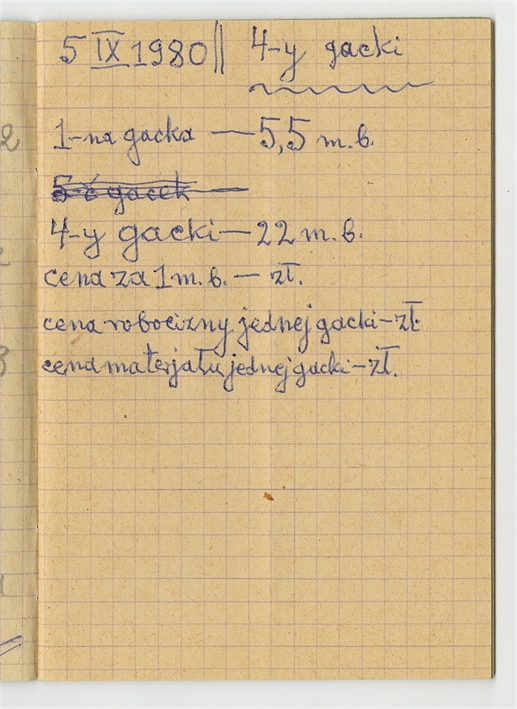 5 IX 1980 || 4-y gacki
1-na gacka — 5,5 m.b.
5-ć gacek —
4-y gacki — 22 m.b.
cena za 1 m.b. — zł.
cena robocizny jednej gacki - zł.
cena materjału jednej gacki - zł.